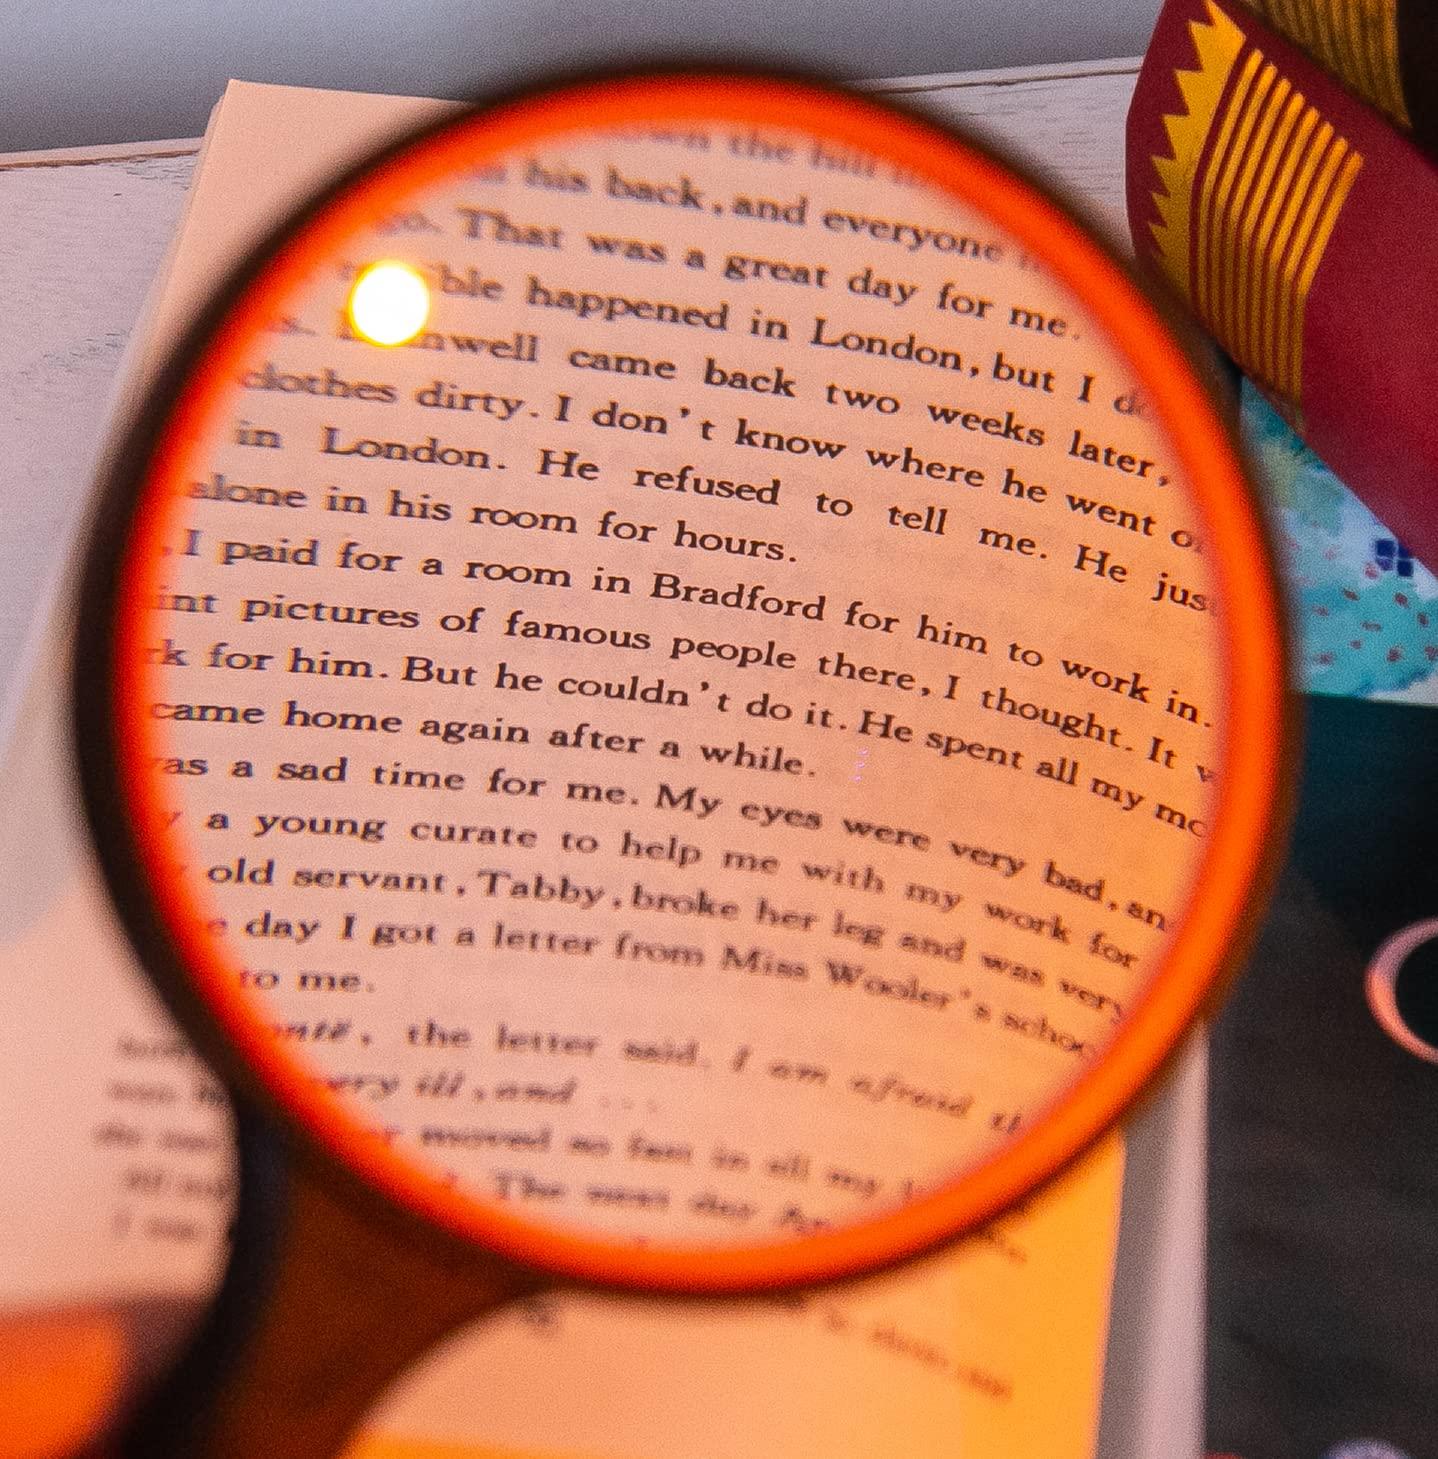 own the hill
his back, and everyone
go. That was a great day for me.
ble happened in London, but I do
nwell came back two weeks later,
clothes dirty. I don't know where he went o
in London. He refused to tell me. He jus
alone in his room for hours.
, I paid for a room in Bradford for him to work in.
int pictures of famous people there, I thought. It w
rk for him. But he couldn't do it. He spent all my mo
came home again after a while.
as a sad time for me. My eyes were very bad, an
y a young curate to help me with my work for
old servant, Tabby, broke her leg and was very
e day I got a letter from Miss Wooler's schoo
to me.
ontë, the letter said. I am afraid th
ery ill, and ...
moved so fast in all my
The next day